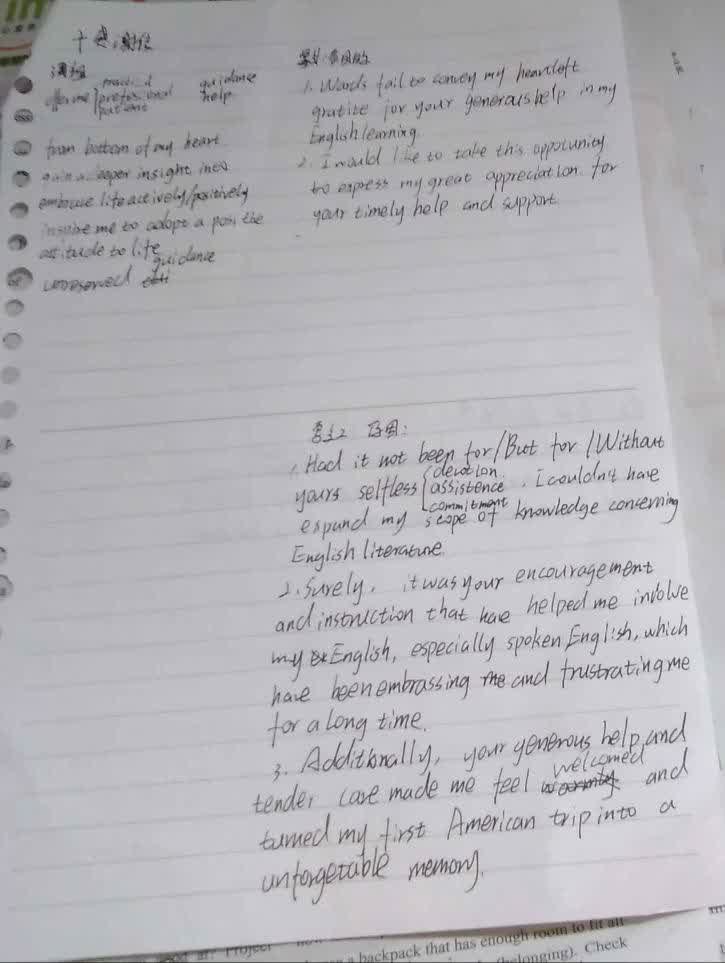 感谢信
词组
offer me practical guidance
professional help
patient
from bottom of my heart
gain a deeper insight into
embrace life actively/positively
inspire me to adopt a positive
attitude to life
guidance
unreserved
1. Words fail to convey my heartfelt
gratite for your generous help in my
English learning.
2. I would like to take this oppotunity
to express my great appreciation for
your timely help and support.
1. Had it not been for/But for/Without
yours selfless devotion
assistence, I couldn't have
commitment
expand my scope of knowledge concerning
English literature.
2. Surely, it was your encouragement
and instruction that have helped me involve
my English, especially spoken English, which
have been embrassing me and frustrating me
for a long time.
3. Additionally, your generous help and
tender care made me feel welcomed and
turned my first American trip into a
unforgetable memory.
a backpack that has enough room to fit all
(belonging). Check